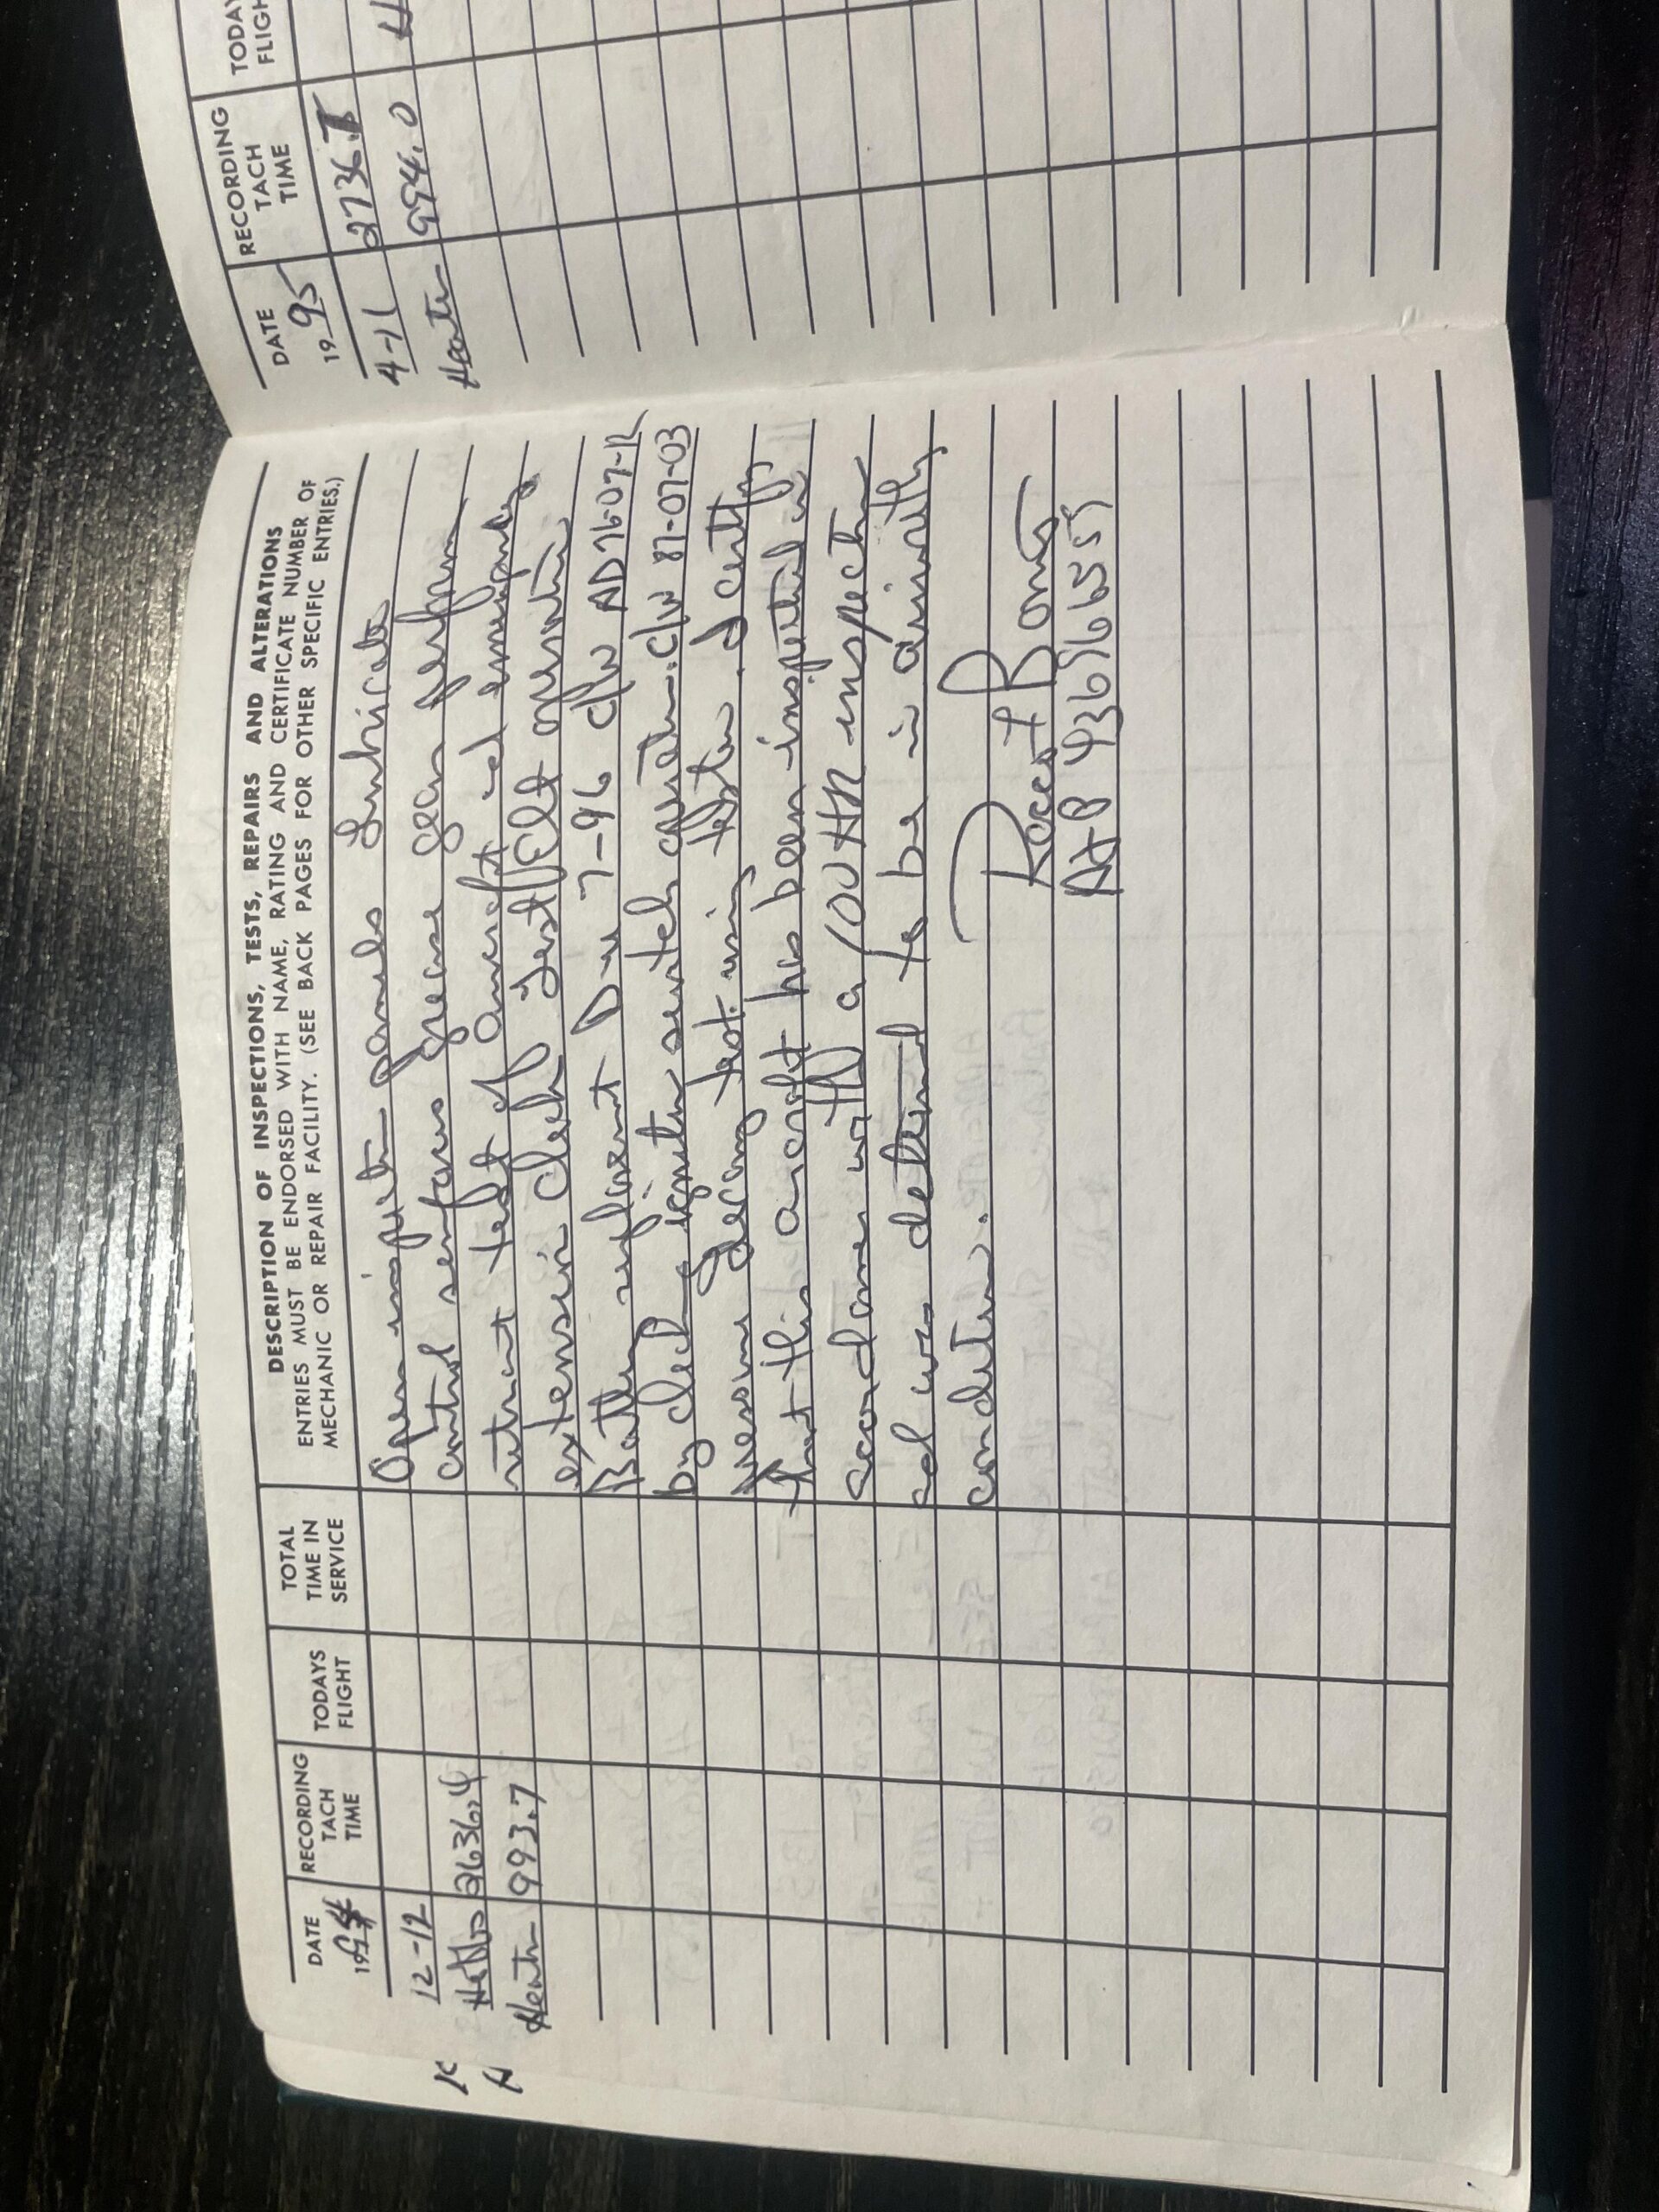 DATE
19 94
RECORDING
TACH
TIME
TODAYS
FLIGHT
TOTAL
TIME IN
SERVICE
DESCRIPTION OF INSPECTIONS, TESTS, REPAIRS AND ALTERATIONS
ENTRIES MUST BE ENDORSED WITH NAME, RATING AND CERTIFICATE NUMBER OF
MECHANIC OR REPAIR FACILITY. (SEE BACK PAGES FOR OTHER SPECIFIC ENTRIES.)
12-12 Open inspection panels Lubricate
Hobbs 2636.4 control surfaces grease gear perform
Heater 993.7 retract test of aircraft and emergency
extension check Test ELT operation
Battery replacement Due 7-96 C/W AD 76-07-12
by check ignition switch operation. C/W 87-07-03
pressure decay test using tester. I certify
that this aircraft has been inspected in
accordance with a 100 HR inspection
and was determined to be in airworthy
condition.
Robert B
A+P
DATE
19 95
RECORDING
TACH
TIME
TODAY
FLIGH
4-11 2736.
Heater 994.0